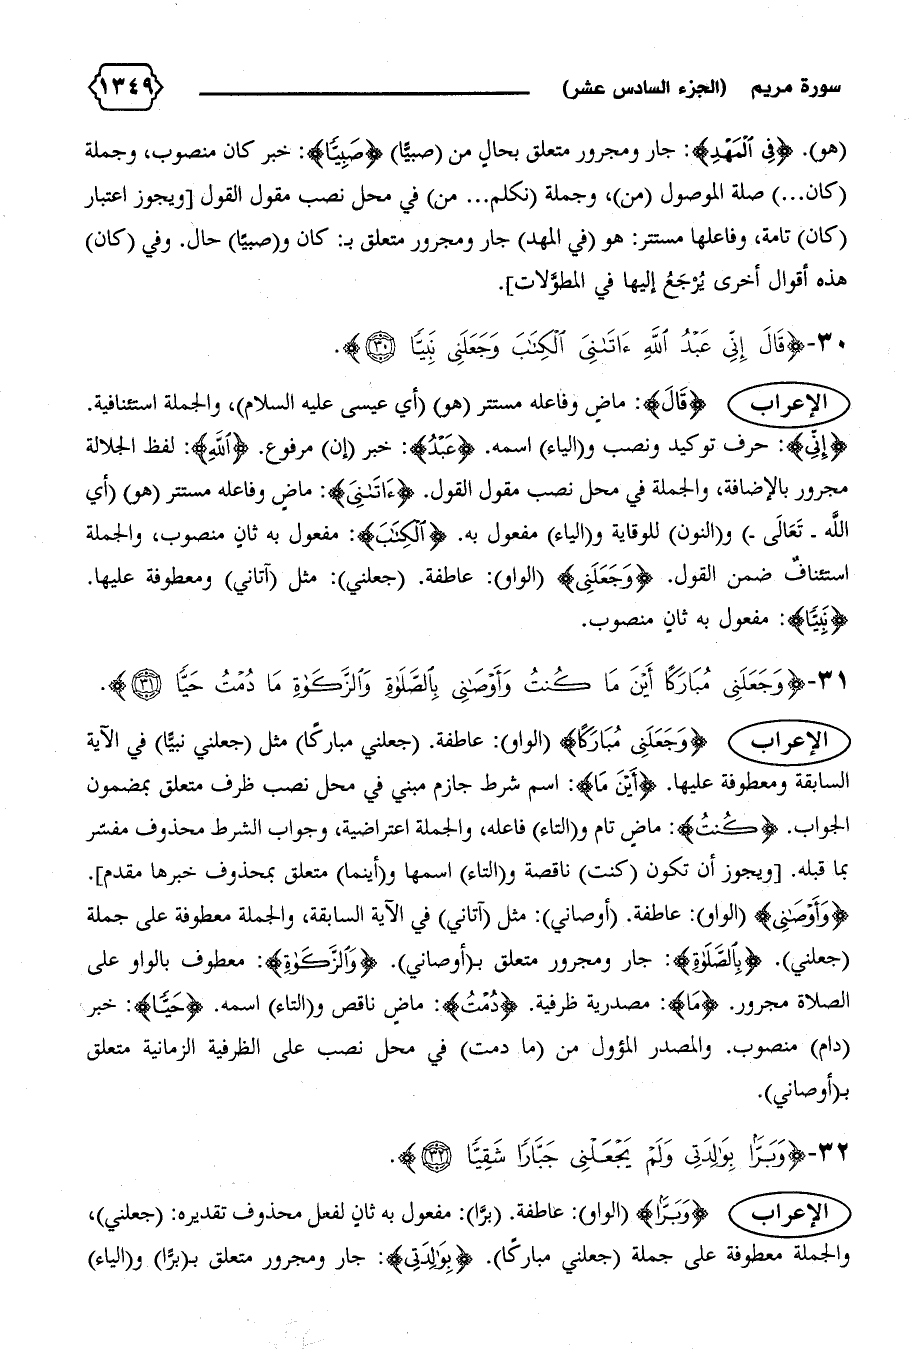 سورة مريم (الجزء السادس عشر) ١٣٤٩
(هو). ﴿فِي ٱلۡمَهۡدِ﴾: جار ومجرور متعلق بحالٍ من (صبيًّا) ﴿صَبِيّٗا﴾: خبر كان منصوب، وجملة
(كان...) صلة الموصول (من)، وجملة (نكلم... من) في محل نصب مقول القول [ويجوز اعتبار
(كان) تامة، وفاعلها مستتر: هو (في المهد) جار ومجرور متعلق بـ: كان و(صبيًا) حال. وفي (كان)
هذه أقوال أخرى يُرْجَعُ إليها في المطوَّلات].
٣٠-﴿قَالَ إِنِّي عَبۡدُ ٱللَّهِ ءَاتَىٰنِيَ ٱلۡكِتَٰبَ وَجَعَلَنِي نَبِيّٗا ٣٠﴾.
الإعراب ﴿قَالَ﴾: ماضٍ وفاعله مستتر (هو) (أي عيسى عليه السلام)، والجملة استئنافية.
﴿إِنِّي﴾: حرف توكيد ونصب و(الياء) اسمه. ﴿عَبۡدُ﴾: خبر (إن) مرفوع. ﴿ٱللَّهِ﴾: لفظ الجلالة
مجرور بالإضافة، والجملة في محل نصب مقول القول. ﴿ءَاتَىٰنِيَ﴾: ماضٍ وفاعله مستتر (هو) (أي
اللَّه ـ تَعَالَى ـ) و(النون) للوقاية و(الياء) مفعول به. ﴿ٱلۡكِتَٰبَ﴾: مفعول به ثانٍ منصوب، والجملة
استئنافٌ ضمن القول. ﴿وَجَعَلَنِي﴾ (الواو): عاطفة. (جعلني): مثل (آتاني) ومعطوفة عليها.
﴿نَبِيّٗا﴾: مفعول به ثانٍ منصوب.
٣١-﴿وَجَعَلَنِي مُبَارَكًا أَيۡنَ مَا كُنتُ وَأَوۡصَٰنِي بِٱلصَّلَوٰةِ وَٱلزَّكَوٰةِ مَا دُمۡتُ حَيّٗا ٣١﴾.
الإعراب ﴿وَجَعَلَنِي مُبَارَكًا﴾ (الواو): عاطفة. (جعلني مباركًا) مثل (جعلني نبيًّا) في الآية
السابقة ومعطوفة عليها. ﴿أَيۡنَ مَا﴾: اسم شرط جازم مبني في محل نصب ظرف متعلق بمضمون
الجواب. ﴿كُنتُ﴾: ماضٍ تام و(التاء) فاعله، والجملة اعتراضية، وجواب الشرط محذوف مفسّر
بما قبله. [ويجوز أن تكون (كنت) ناقصة و(التاء) اسمها و(أينما) متعلق بمحذوف خبرها مقدم].
﴿وَأَوۡصَٰنِي﴾ (الواو): عاطفة. (أوصاني): مثل (آتاني) في الآية السابقة، والجملة معطوفة على جملة
(جعلني). ﴿بِٱلصَّلَوٰةِ﴾: جار ومجرور متعلق بـ(أوصاني). ﴿وَٱلزَّكَوٰةِ﴾: معطوف بالواو على
الصلاة مجرور. ﴿مَا﴾: مصدرية ظرفية. ﴿دُمۡتُ﴾: ماضٍ ناقص و(التاء) اسمه. ﴿حَيّٗا﴾: خبر
(دام) منصوب. والمصدر المؤول من (ما دمت) في محل نصب على الظرفية الزمانية متعلق
بـ(أوصاني).
٣٢-﴿وَبَرَّۢا بِوَٰلِدَتِي وَلَمۡ يَجۡعَلۡنِي جَبَّارٗا شَقِيّٗا ٣٢﴾.
الإعراب ﴿وَبَرَّۢا﴾ (الواو): عاطفة. (برًّا): مفعول به ثانٍ لفعل محذوف تقديره: (جعلني)،
والجملة معطوفة على جملة (جعلني مباركًا). ﴿بِوَٰلِدَتِي﴾: جار ومجرور متعلق بـ(برًّا) و(الياء)